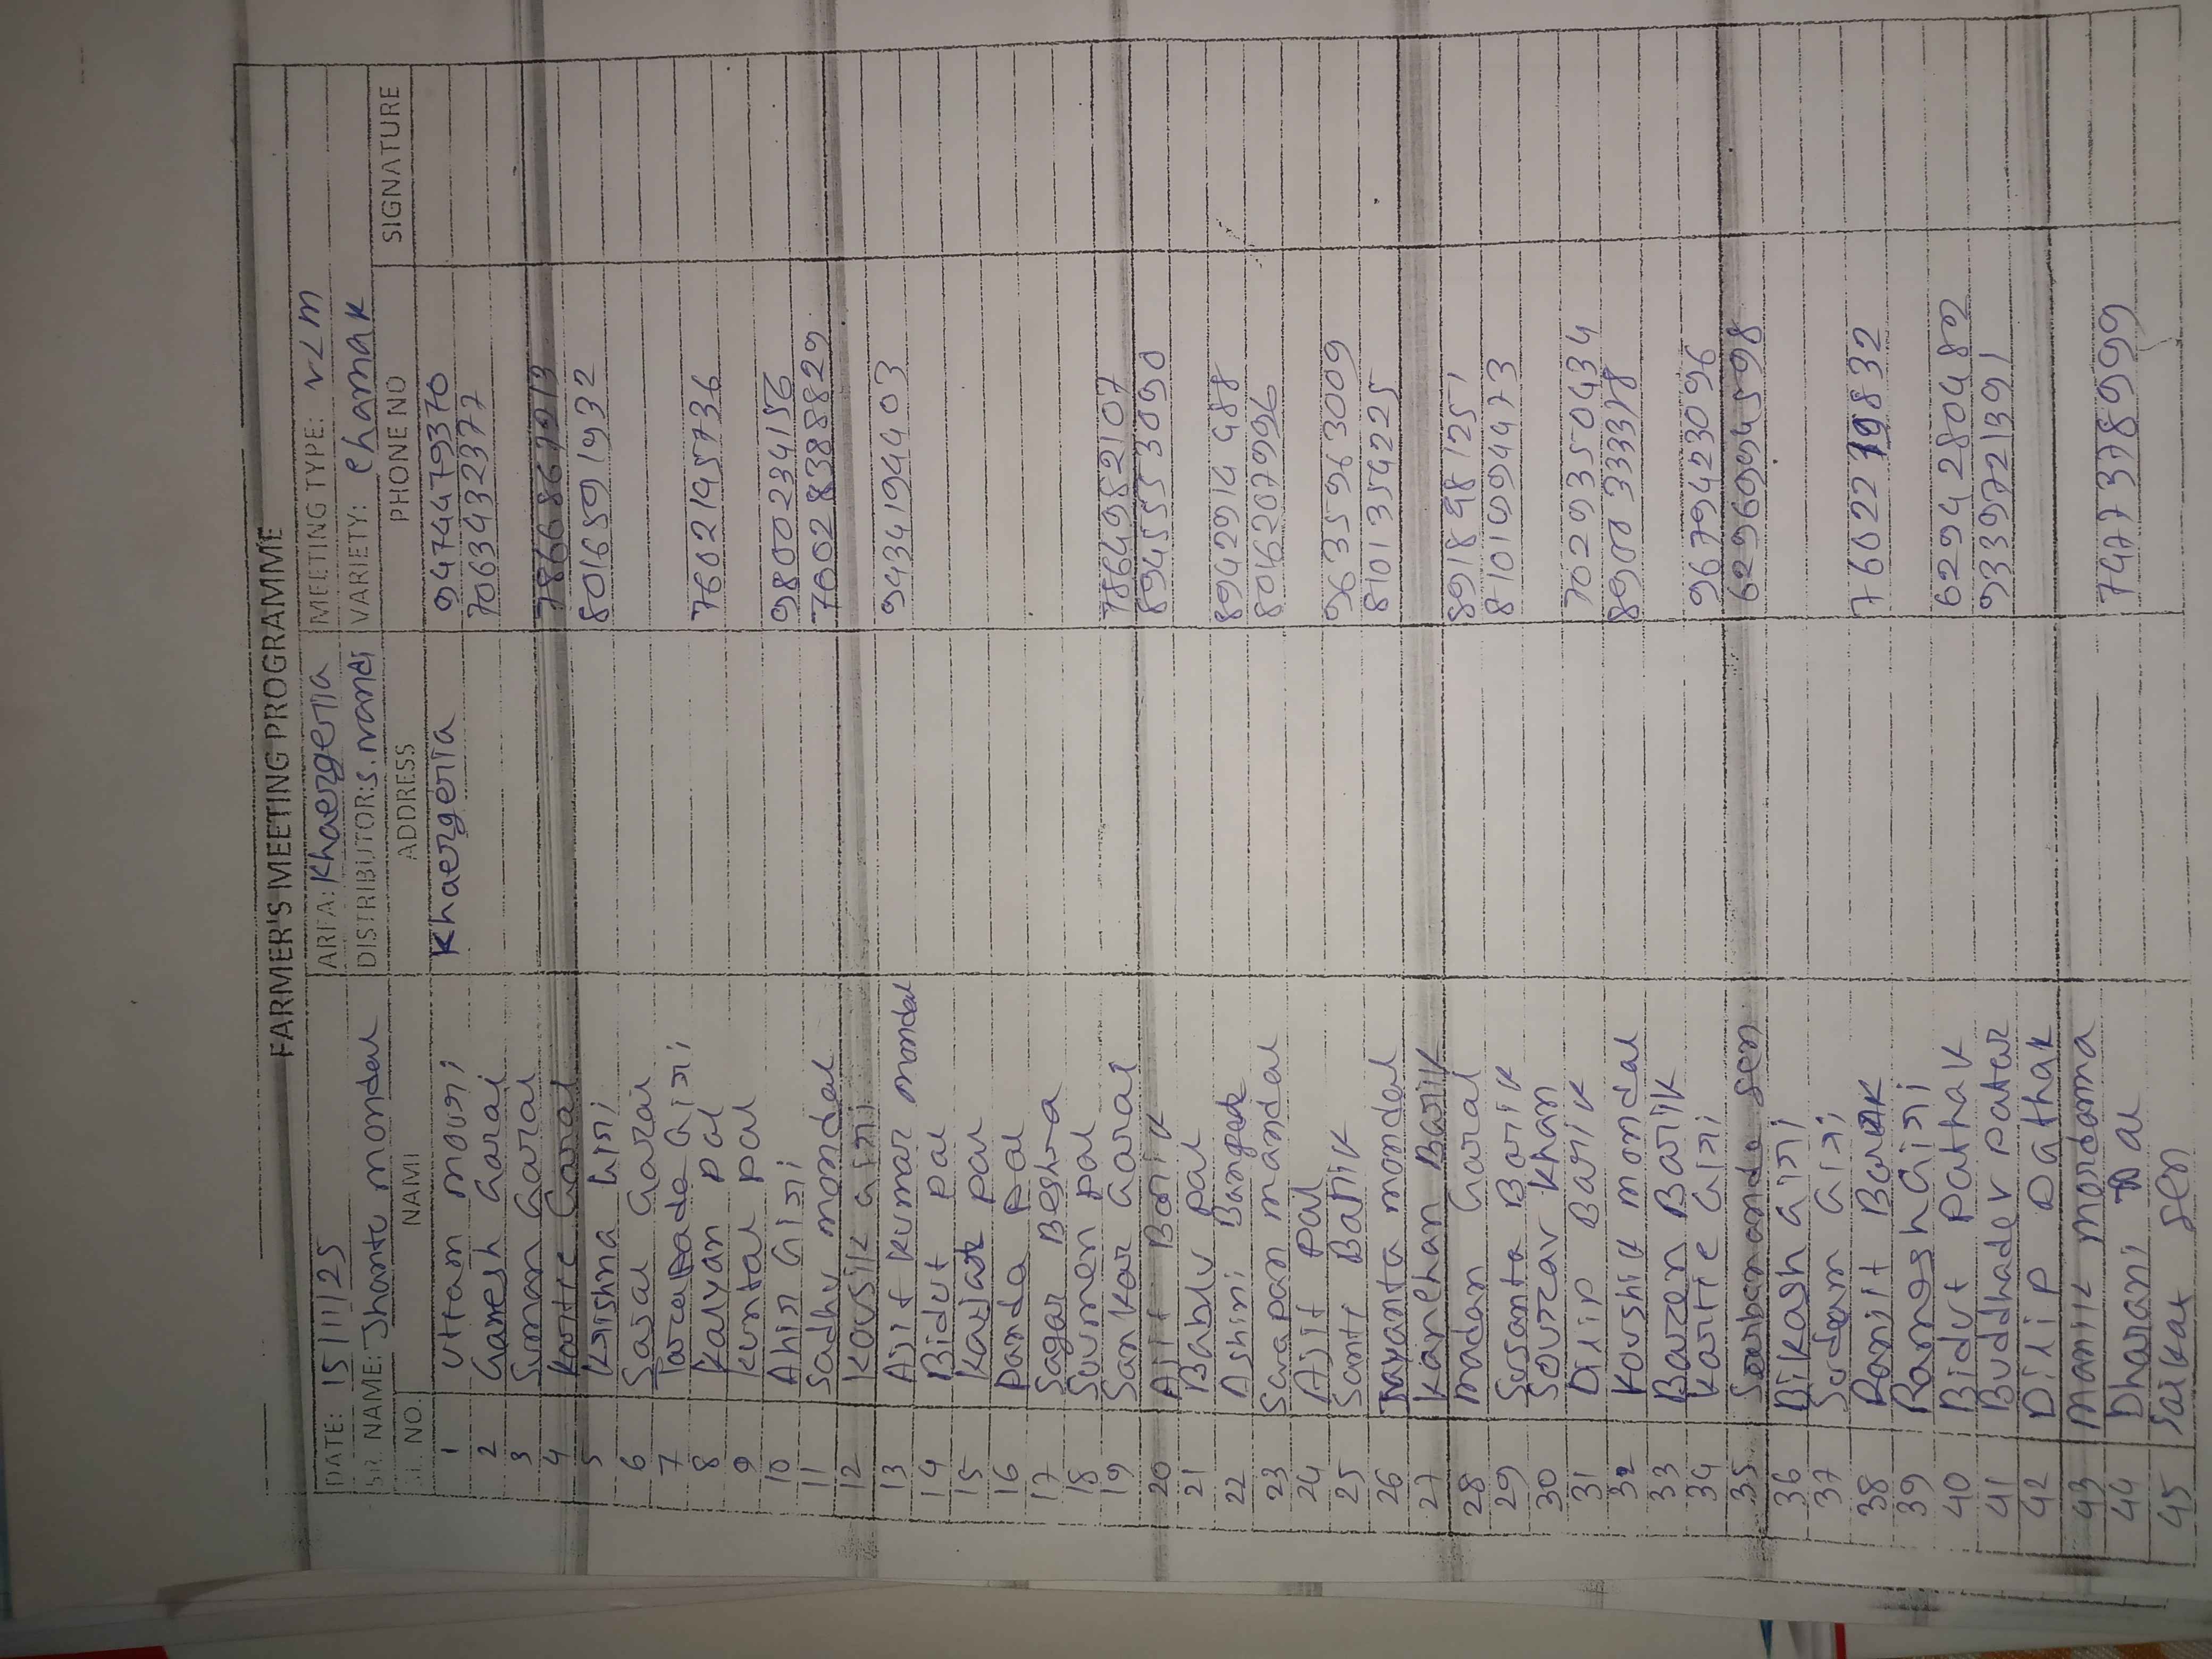 FARMER'S MEETING PROGRAMME
DATE: 15/11/25 AREA: Khaergeria MEETING TYPE: VLM
SR. NAME: Jhantu mondal DISTRIBUTOR: S. nandi VARIETY: chamak
SL. NO. NAME ADDRESS PHONE NO SIGNATURE
1 Uttam mouri Khaergeria 9474479370
2 Ganesh Garai 7063432377
3 Suman Garai
4 Kartic Garai 7866867013
5 Krishna Giri 8016591932
6 Saral Garai
7 Tarapada Giri
8 Kalyan Pal 7602145736
9 Kuntal pal
10 Ahir Giri 9800234156
11 Sadhu mondal 7602838829
12 Kousik Giri
13 Ajit Kumar mondal 9434194403
14 Bidut pal
15 Kajal pal
16 Panda Pal
17 Sagar Beshra
18 Suvmen pal
19 Sankar Garai 7864982107
20 Ajit Barik 8945553090
21 Bablu pal
22 Ashini 8942914488
23 Swapan mandal 8046207996
24 Ajit Pal
25 Santi Barik 9635963009
26 Jayanta mondal 8101354225
27 Kanchan Barik
28 madan Garai 8918481251
29 Susanta Barik 8101994473
30 Sourav Khan
31 Dilip Barik 7029350434
32 Koushik mondal 8900333378
33 Baren Barik
34 Kartic Giri 9679423096
35 Sarbananda Sen 6296994598
36 Bikash Giri
37 Sudam Giri
38 Ranjit Barik 7602279832
39 Ramesh Giri
40 Bidut Pathak 6294280482
41 Buddhadev Patar 9339721391
42 Dilip Pathak
43 Manik mordanna
44 Dharani Pal 7477378999
45 Saikat Sen